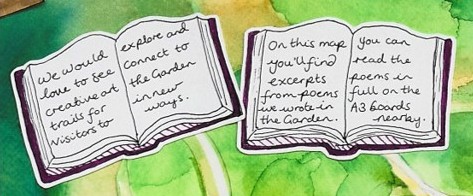 We would
love to see
creative art
trails for
visitors to
explore and
connect to
the Garden
in new
ways.
On this map
you'll find
excerpts
from poems
we wrote in
the Garden.
You can
read the
poems in
full on the
A3 boards
nearby.